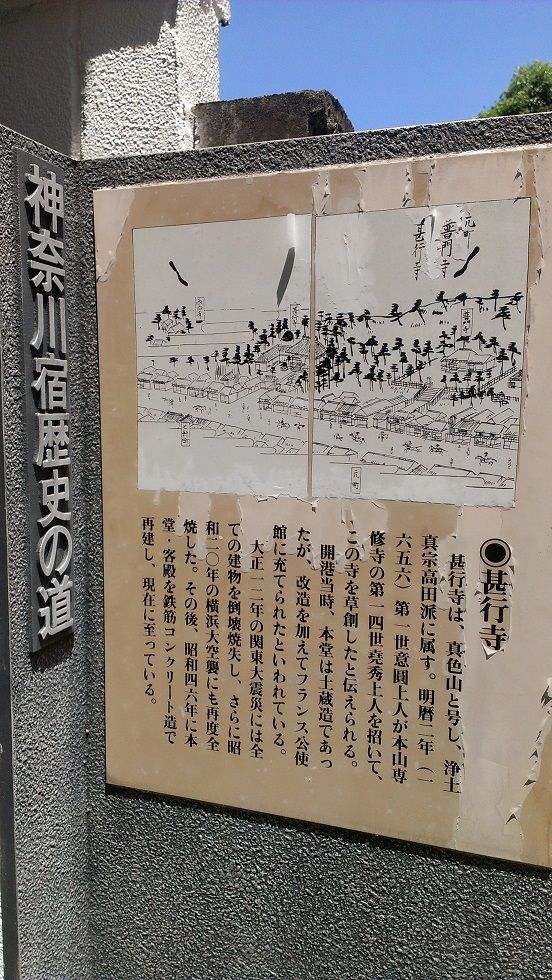 神奈川宿歴史の道
元町
普門寺
甚行寺
元町
●甚行寺
甚行寺は、真色山と号し、浄土
真宗高田派に属す。明暦二年（一
六五六）第一世意圓上人が本山専
修寺の第一四世堯秀上人を招いて、
この寺を草創したと伝えられる。
開港当時、本堂は土蔵造であっ
たが、改造を加えてフランス公使
館に充てられたといわれている。
大正一二年の関東大震災には全
ての建物を倒壊焼失し、さらに昭
和二〇年の横浜大空襲にも再度全
焼した。その後、昭和四六年に本
堂・客殿を鉄筋コンクリート造で
再建し、現在に至っている。